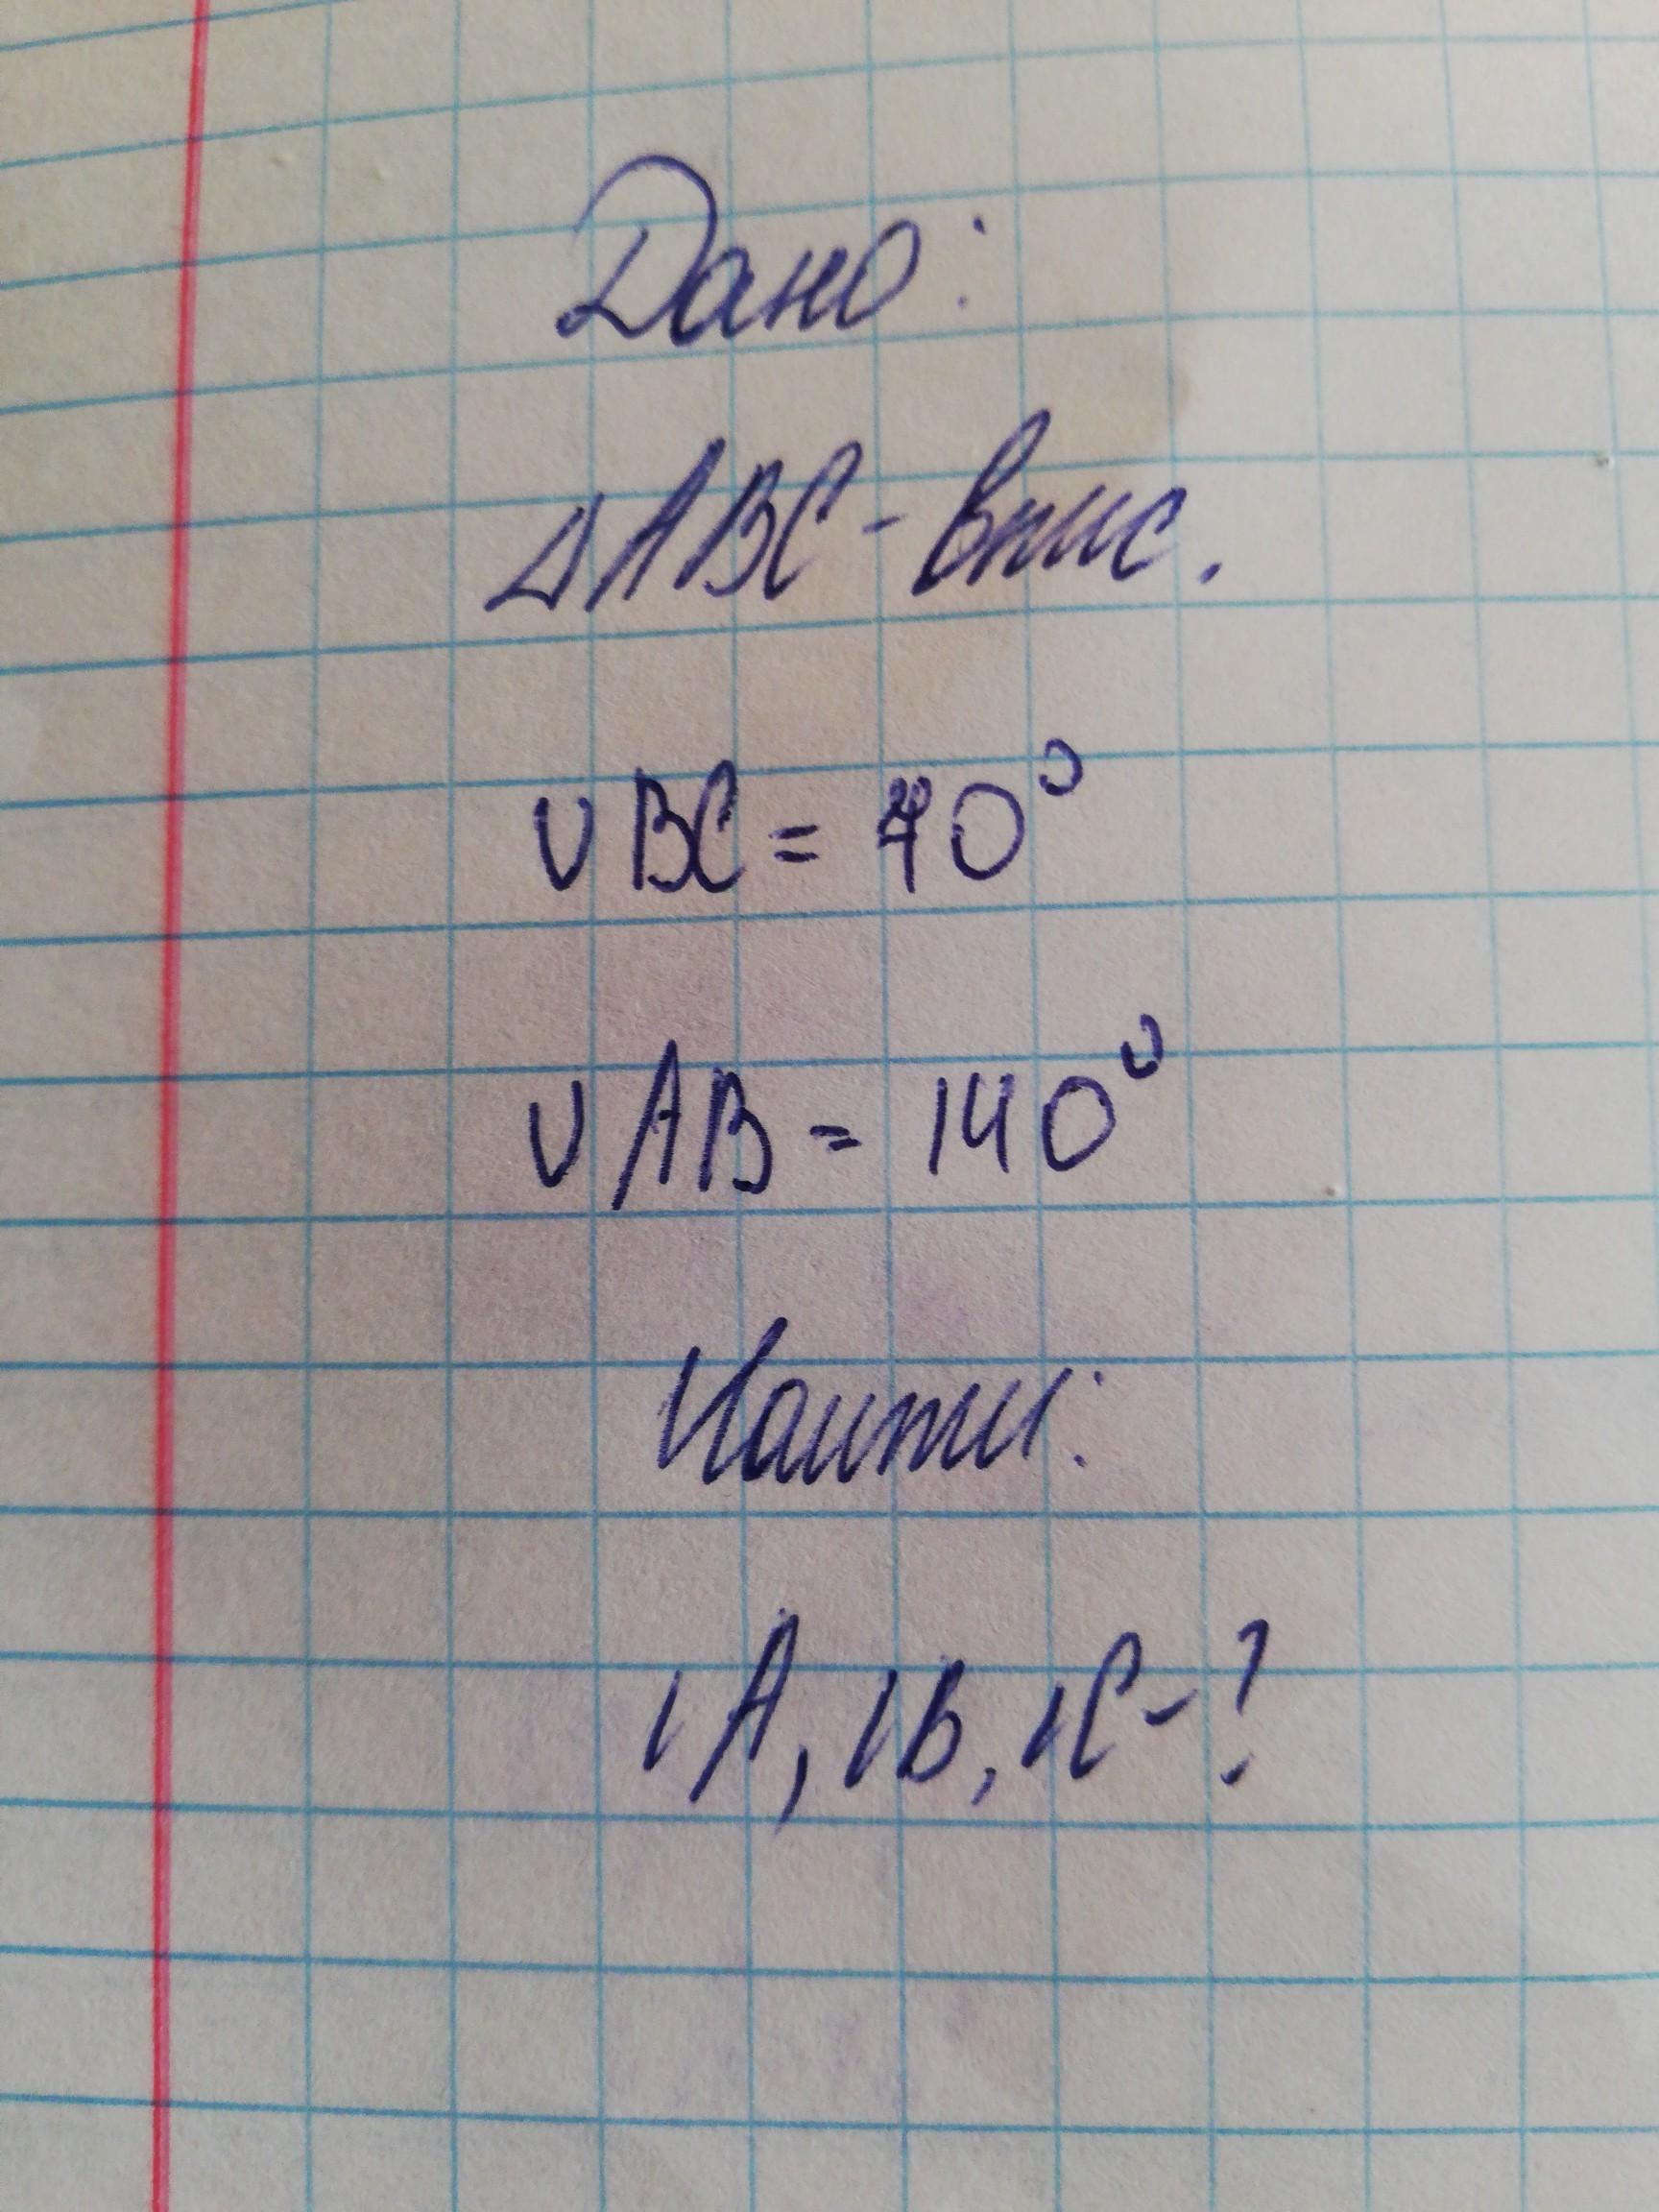 Дано:
△ABC - впис.
∪BC = 70°
∪AB = 140°
Найти:
∠A, ∠B, ∠C - ?